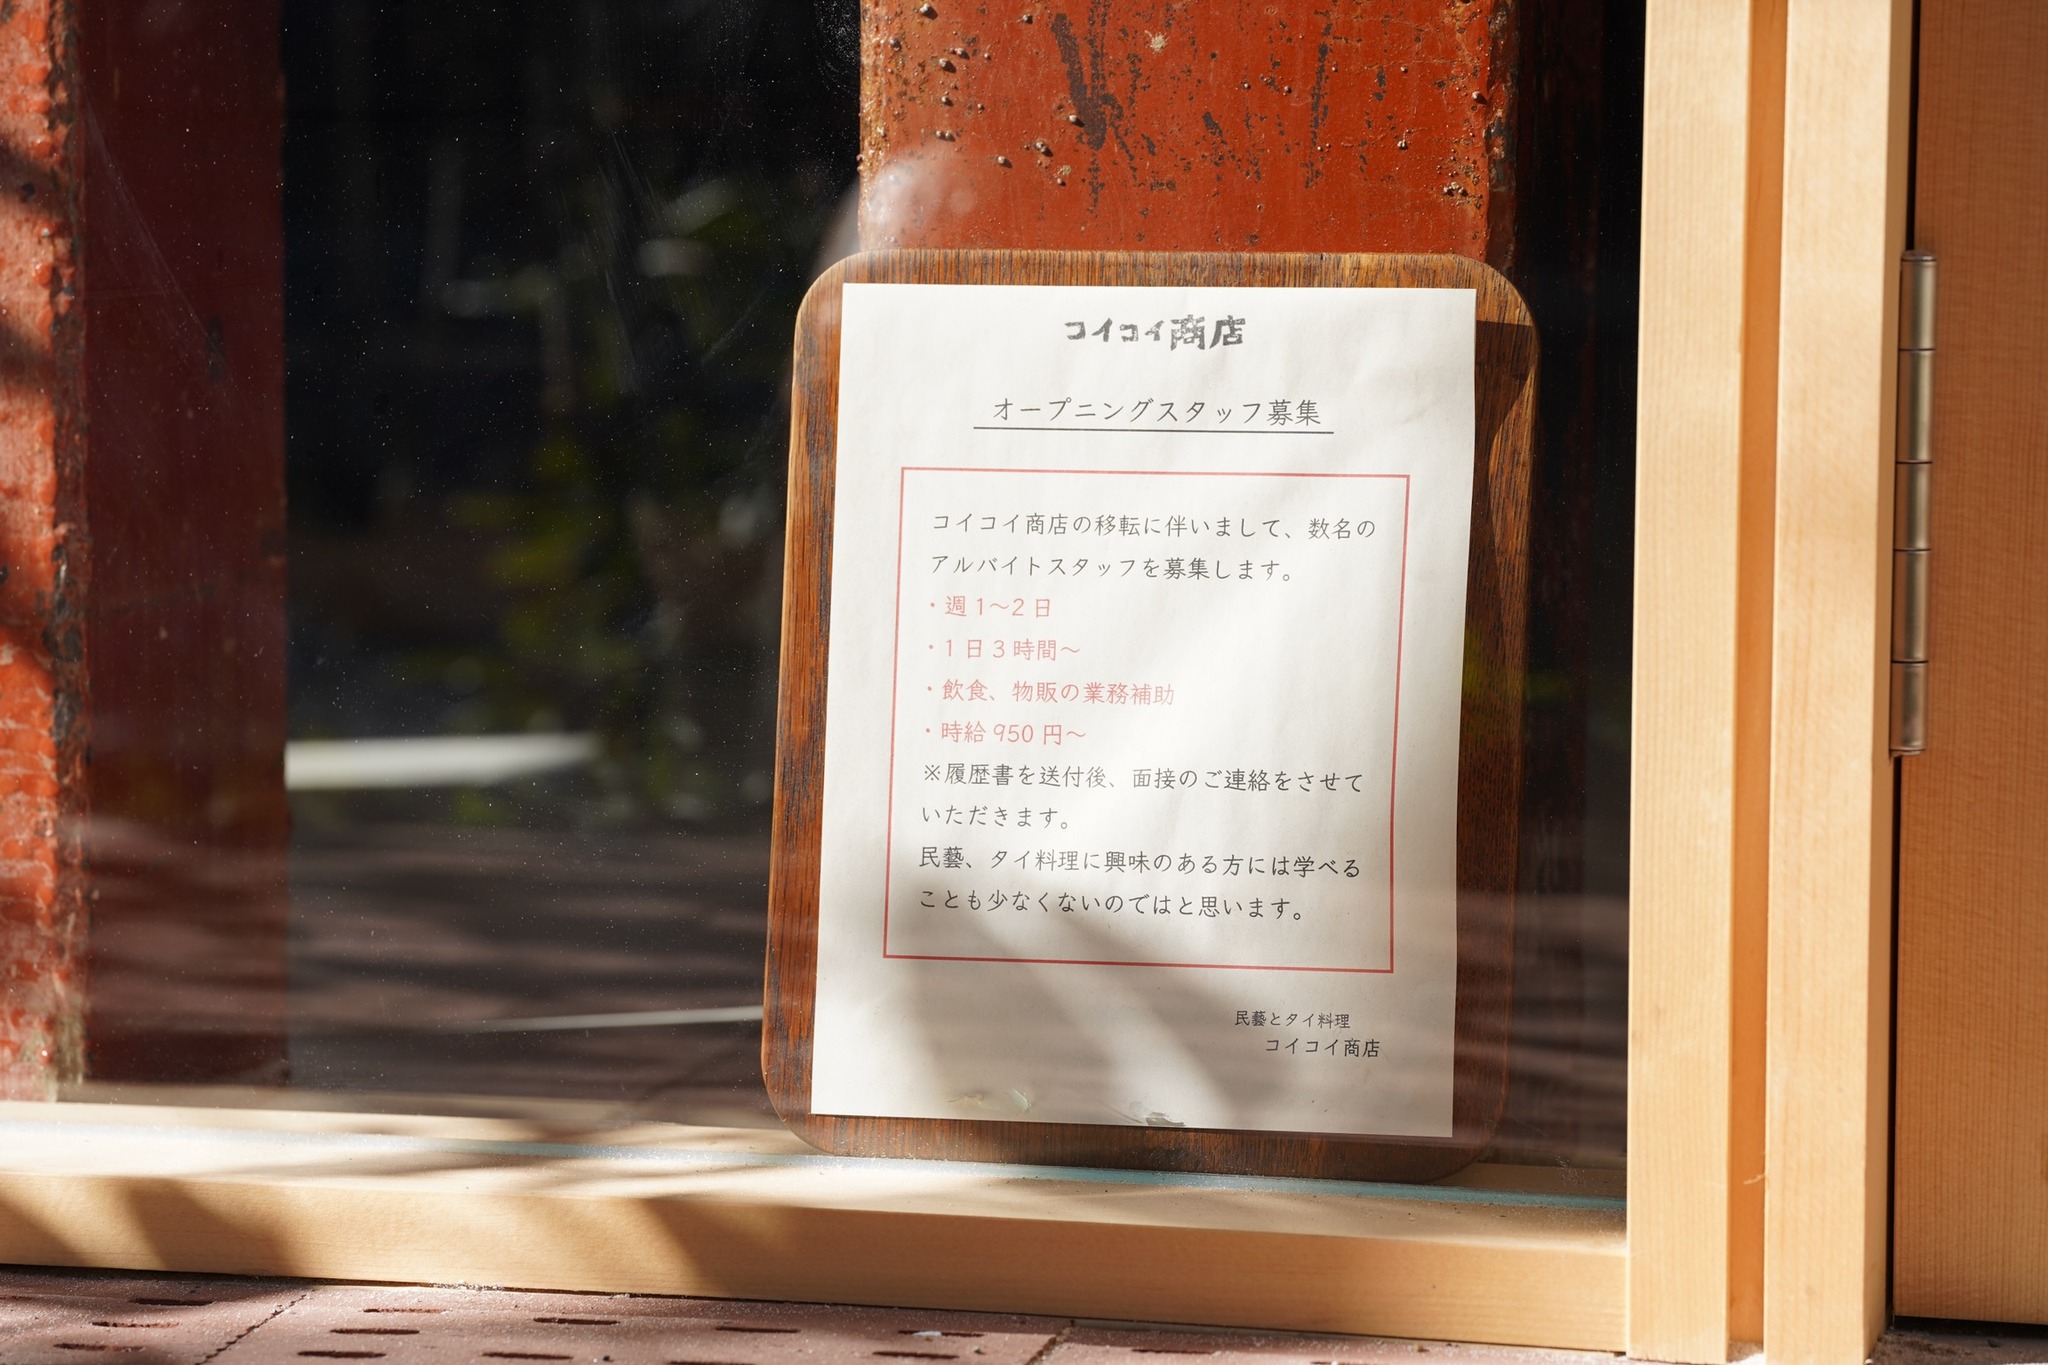 コイコイ商店
オープニングスタッフ募集
コイコイ商店の移転に伴いまして、数名の
アルバイトスタッフを募集します。
・週1〜2日
・1日3時間〜
・飲食、物販の業務補助
・時給950円〜
※履歴書を送付後、面接のご連絡をさせて
いただきます。
民藝、タイ料理に興味のある方には学べる
ことも少なくないのではと思います。
民藝とタイ料理
コイコイ商店